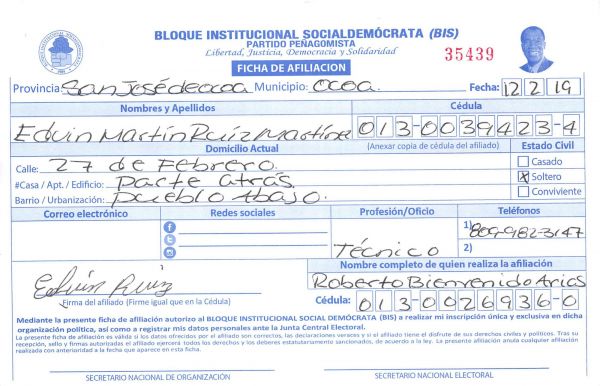 BLOQUE INSTITUCIONAL SOCIALDEMÓCRATA (BIS)
PARTIDO PEÑAGOMISTA
Libertad, Justicia, Democracia y Solidaridad
35439
FICHA DE AFILIACION
Provincia San José de ocoa Municipio: Ocoa. Fecha: 12 2 19
Nombres y Apellidos Cédula
Edvin Martín Ruíz Martínez 013-0039423-4
Domicilio Actual (Anexar copia de cédula del afiliado) Estado Civil
Calle: 27 de Febrero. Casado
#Casa / Apt. / Edificio: parte atrás. X Soltero
Barrio / Urbanización: pueblo Abajo. Conviviente
Correo electrónico Redes sociales Profesión/Oficio Teléfonos
1) 809-982-3147
Técnico 2)
Nombre completo de quien realiza la afiliación
Edvin Ruiz Roberto Bienvenido Arias
Firma del afiliado (Firme igual que en la Cédula) Cédula: 013-0026936-0
Mediante la presente ficha de afiliación autorizo al BLOQUE INSTITUCIONAL SOCIAL DEMÓCRATA (BIS) a realizar mi inscripción única y exclusiva en dicha
organización política, así como a registrar mis datos personales ante la Junta Central Electoral.
La presente ficha de afiliación es válida si los datos ofrecidos por el afiliado son correctos, las declaraciones veraces y si el afiliado tiene el disfrute de sus derechos civiles y políticos. Tras su
recepción, sello y firmas autorizadas el afiliado ejercerá todos los derechos y los deberes estatutariamente sancionados, de acuerdo a la ley. La presente afiliación anula cualquier afiliación
realizada con anterioridad a la fecha que aparece en esta ficha.
SECRETARIO NACIONAL DE ORGANIZACIÓN SECRETARIO NACIONAL ELECTORAL